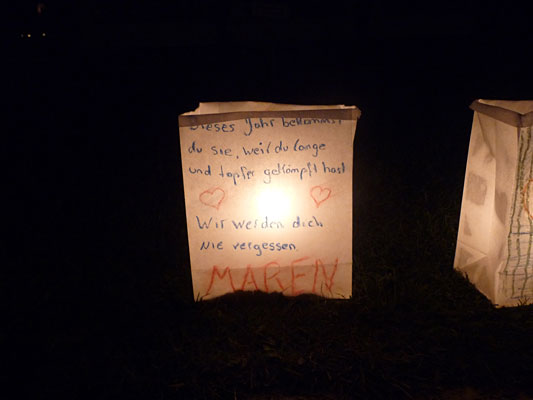 Dieses Jahr bekommst
du sie, weil du lange
und tapfer gekämpft hast
Wir werden dich
NIE vergessen.
MAREN